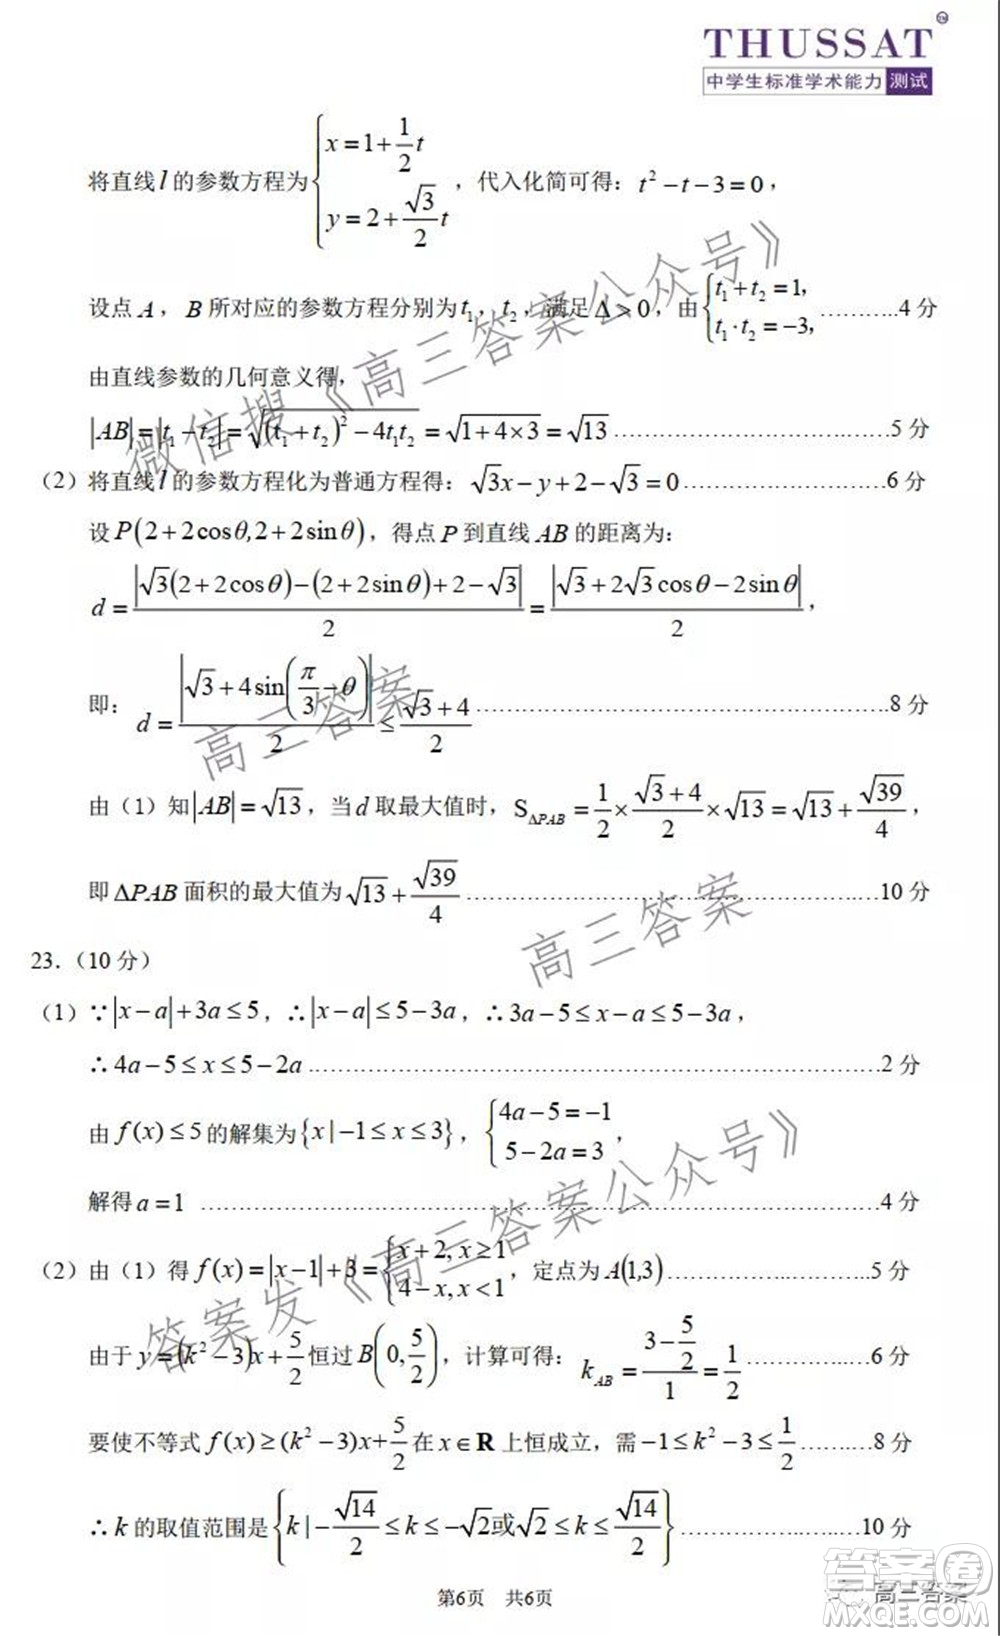 THUSSAT
中学生标准学术能力测试
将直线 l 的参数方程为 { x=1+1/2 t, y=2+√3/2 t ，代入化简可得：t²-t-3=0，
设点 A，B 所对应的参数方程分别为 t₁，t₂，满足 Δ>0，由 { t₁+t₂=1, t₁·t₂=-3, ………..4 分
由直线参数的几何意义得,
|AB|=|t₁-t₂|=√((t₁+t₂)²-4t₁t₂)=√(1+4×3)=√13 ……………………………5 分
（2）将直线 l 的参数方程化为普通方程得：√3x-y+2-√3=0 ……………………6 分
设 P(2+2cosθ,2+2sinθ)，得点 P 到直线 AB 的距离为：
d=|√3(2+2cosθ)-(2+2sinθ)+2-√3|/2=|√3+2√3cosθ-2sinθ|/2，
即：d=|√3+4sin(π/3-θ)|/2≤(√3+4)/2 ……………………………………8 分
由（1）知|AB|=√13，当 d 取最大值时，S_ΔPAB=1/2×(√3+4)/2×√13=√13+√39/4，
即 ΔPAB 面积的最大值为 √13+√39/4 ……………………………………10 分
23．（10 分）
（1）∵|x-a|+3a≤5，∴|x-a|≤5-3a，∴3a-5≤x-a≤5-3a，
∴4a-5≤x≤5-2a ……………………………………………………2 分
由 f(x)≤5 的解集为{x|-1≤x≤3}，{ 4a-5=-1, 5-2a=3 ，
解得 a=1 ……………………………………………………………4 分
（2）由（1）得 f(x)=|x-1|+3={ x+2,x≥1, 4-x,x<1 ，定点为 A(1,3) ……………………5 分
由于 y=(k²-3)x+5/2 恒过 B(0,5/2)，计算可得：k_AB=(3-5/2)/1=1/2 ……………6 分
要使不等式 f(x)≥(k²-3)x+5/2 在 x∈R 上恒成立，需 -1≤k²-3≤1/2 …………8 分
∴k 的取值范围是{k|-√14/2≤k≤-√2或√2≤k≤√14/2} ……………………10 分
第6页 共6页
微信搜《高三答案公众号》
高三答案
高三答案
答案发《高三答案公众号》
高三答案
答案卷
MXQE.COM